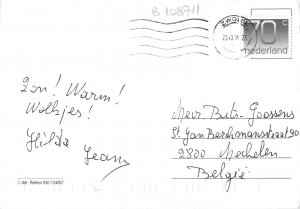 B 108711
70 c
nederland
Zon! Warm!
Wolkjes!
Hilda
Jean
Meir Buts-Goossens
St. Jan Berchmansstraat 90
2800 Mechelen
België